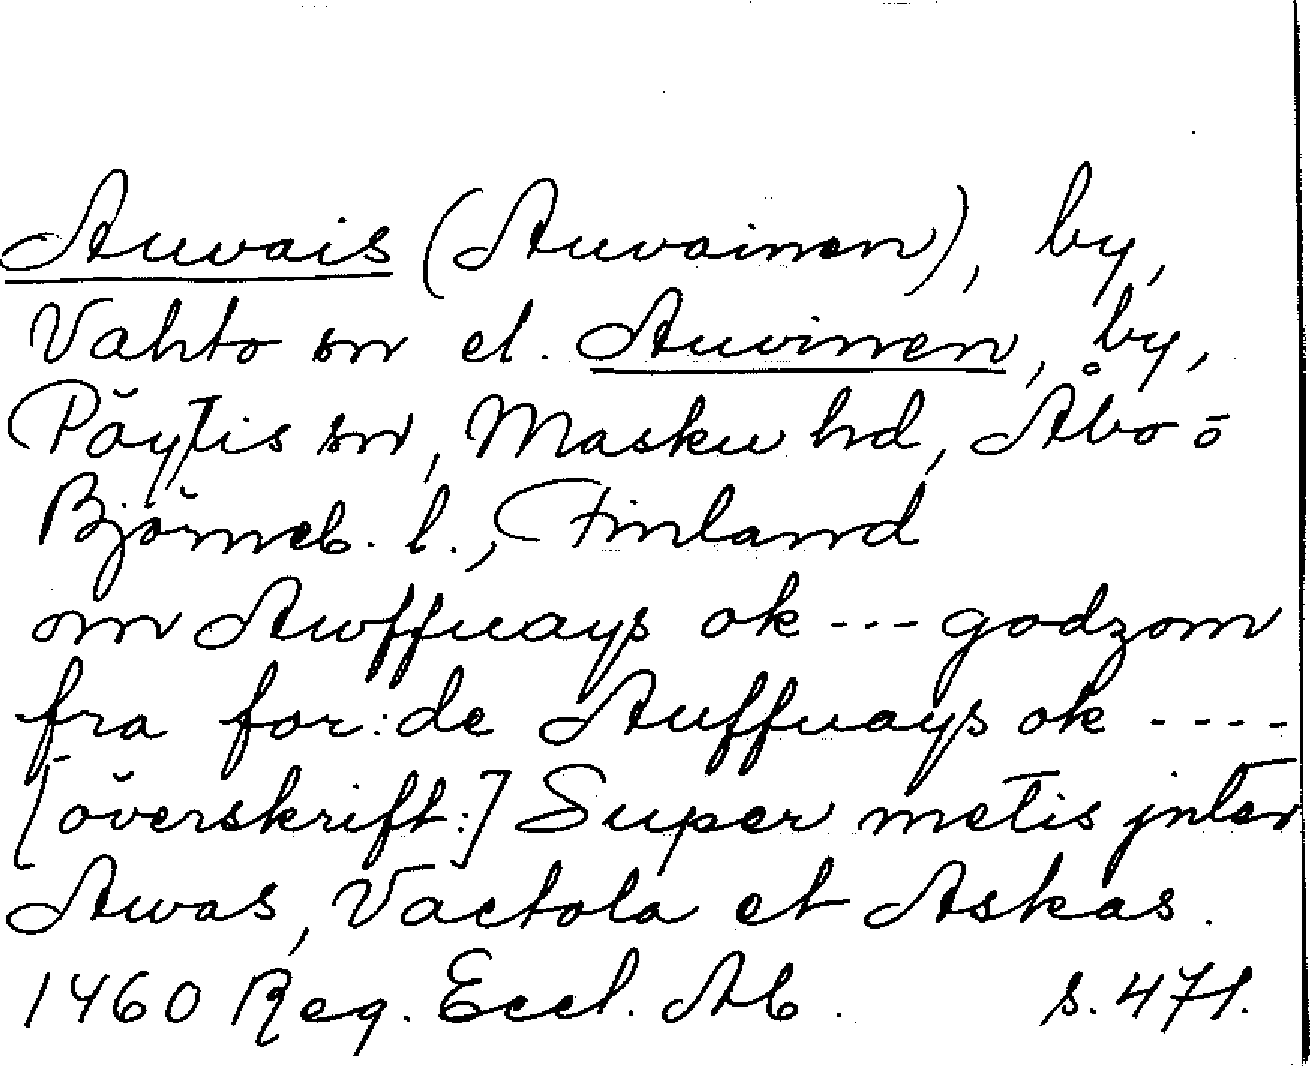 Auvais (Auvainen), by,
Vahto sn el. Auvinen, by,
Pöytis sn, Masku hd, Åbo o
Björneb. l., Finland
om Awffuays ok --- godzom
fra for:de Auffuays ok ----
[överskrift:] Super metis jnter
Awas, Vactola et Askas.
1460 Reg. Eccl. Ab. s. 471.